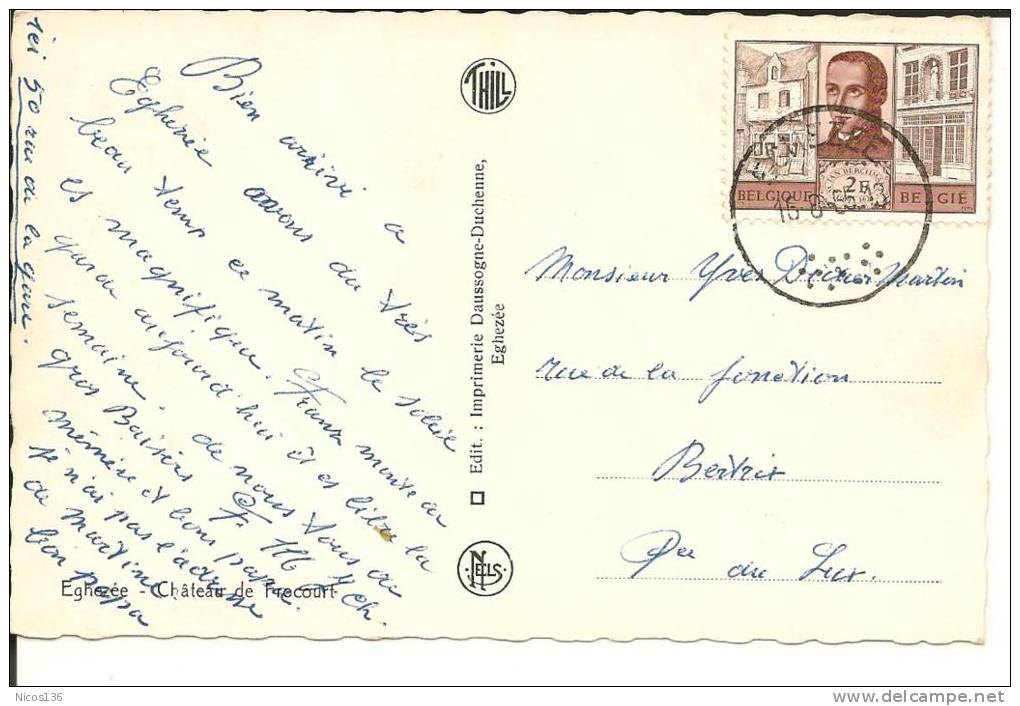 ici 50 rue de la gare.
Bien arrivé a
Eghezée avons du très
beau temps ce matin le soleil
es magnifique. Frans monte en
garde aujourd'hui il es libre la
semaine. de nous tous ou
gros Baisers
mémère et bon papa.
je n'ai pas l'adresse
de martine
bon papa
Eghezée - Château de Frocourt
THILL
Edit. : Imprimerie Daussogne-Duchenne,
Eghezée
NELS
BELGIQUE 2F BELGIË
EGHEZEE
Monsieur Yves Martin
rue de la fonction
Bertrix
Pce du Lux.
Nicos136
http://www.delcampe.net